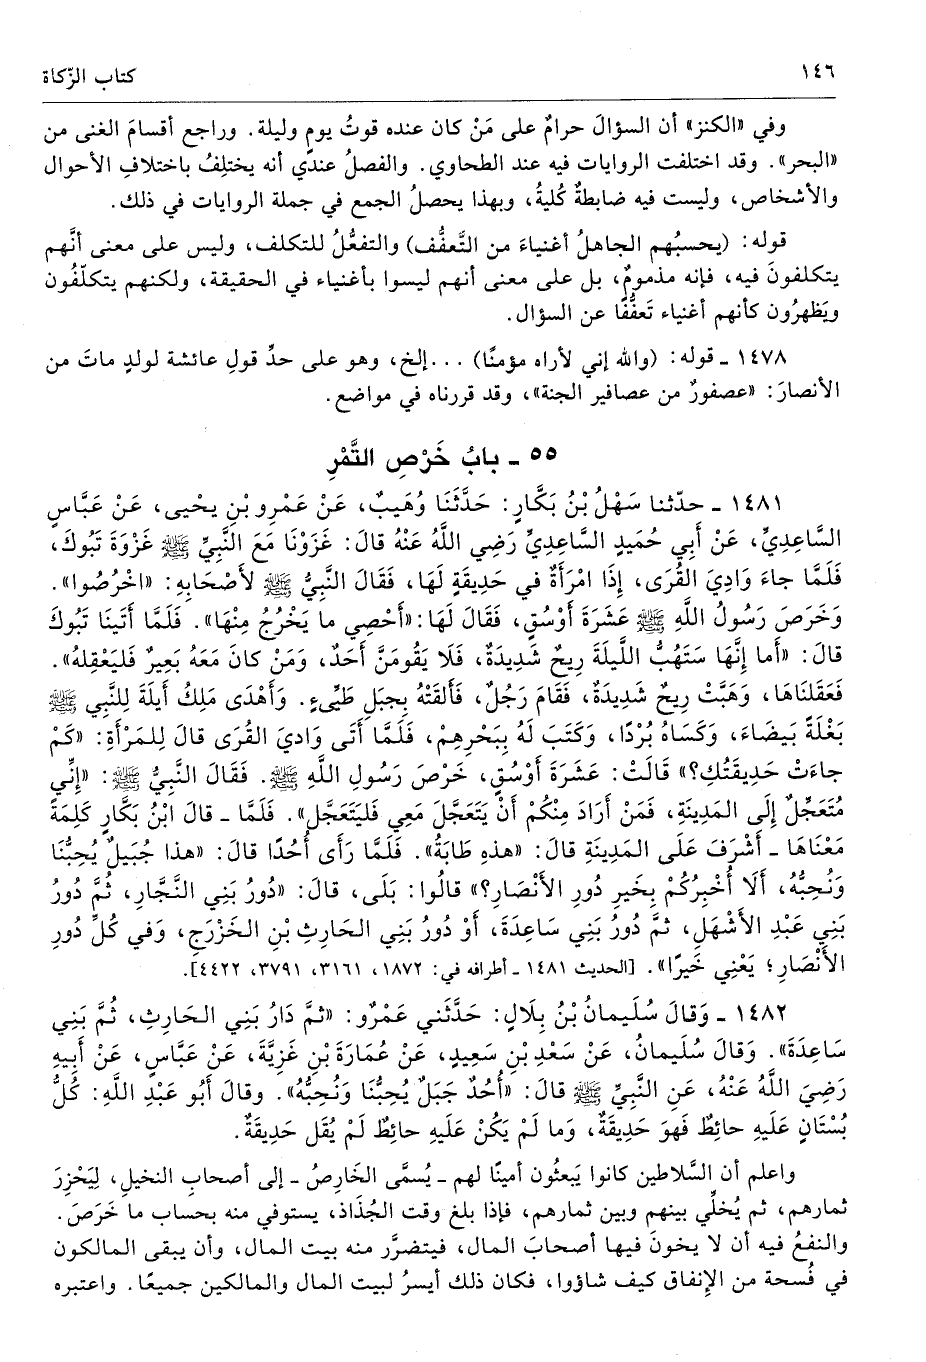 ١٤٦ كتاب الزّكاة
وفي «الكنز» أن السؤالَ حرامٌ على مَنْ كان عنده قوتُ يومٍ وليلة. وراجع أقسامَ الغنى من
«البحر». وقد اختلفت الروايات فيه عند الطحاوي. والفصلُ عندي أنه يختلِفُ باختلافِ الأحوال
والأشخاص، وليست فيه ضابطةٌ كُليةُ، وبهذا يحصلُ الجمع في جملة الروايات في ذلك.
قوله: (يحسبُهم الجاهلُ أغنياءَ من التَّعفُّف) والتفعُّلُ للتكلف، وليس على معنى أنَّهم
يتكلفونَ فيه، فإنه مذمومٌ، بل على معنى أنهم ليسوا بأغنياء في الحقيقة، ولكنهم يتكلّفُون
ويَظهرُون كأنهم أغنياء تَعفُّفًا عن السؤال.
١٤٧٨ ـ قوله: (والله إني لأراه مؤمنًا) ...إلخ، وهو على حدِّ قولِ عائشة لولدٍ ماتَ من
الأنصارَ: «عصفورٌ من عصافير الجنة»، وقد قررناه في مواضع.
٥٥ ـ بابُ خَرْصِ التَّمْرِ
١٤٨١ ـ حدّثنا سَهْلُ بْنُ بَكَّارٍ: حَدَّثَنَا وُهَيبٌ، عَنْ عَمْرِو بْنِ يحْيى، عَنْ عَبَّاسٍ
السَّاعِدِيِّ، عَنْ أَبِي حُمَيدٍ السَّاعِدِيِّ رَضِي اللَّهُ عَنْهُ قالَ: غَزَوْنَا مَعَ النَّبِيِّ ﷺ غَزْوَةَ تَبُوكَ،
فَلَمَّا جاءَ وَادِيَ القُرَى، إِذَا امْرَأَةٌ في حَدِيقَةٍ لَهَا، فَقَالَ النَّبِيُّ ﷺ لأَصْحَابِهِ: «اخْرُصُوا».
وَخَرَصَ رَسُولُ اللَّهِ ﷺ عَشَرَةَ أَوْسُقٍ، فَقَالَ لَهَا: «أَحْصِي ما يَخْرُجُ مِنْهَا». فَلَمَّا أَتَينَا تَبُوكَ
قالَ: «أَما إِنَّهَا سَتَهُبُّ اللَّيلَةَ رِيحٌ شَدِيدَةٌ، فَلَا يَقُومَنَّ أَحَدٌ، وَمَنْ كانَ مَعَهُ بَعِيرٌ فَليَعْقِلهُ».
فَعَقَلنَاهَا، وَهَبَّتْ رِيحٌ شَدِيدَةٌ، فَقَامَ رَجُلٌ، فَأَلقَتْهُ بِجبَلِ طَيِّءٍ. وَأَهْدَى مَلِكُ أَيلَةَ لِلنَّبِي ﷺ
بَغْلَةً بَيضَاءَ، وَكَسَاهُ بُرْدًا، وَكَتَبَ لَهُ بِبَحْرِهِمْ، فَلَمَّا أَتَى وَادِيَ القُرَى قالَ لِلمَرْأَةِ: «كَمْ
جاءَتْ حَدِيقَتُكِ؟» قَالَتْ: عَشَرَةَ أَوْسُقٍ، خَرْصَ رَسُولِ اللَّهِ ﷺ. فَقَالَ النَّبِيُّ ﷺ: «إِنِّي
مُتَعَجِّلٌ إِلَى المَدِينَةِ، فَمَنْ أَرَادَ مِنْكُمْ أَنْ يَتَعَجَّلَ مَعِي فَليَتَعَجَّل». فَلَمَّا ـ قالَ ابْنُ بَكَّارٍ كَلِمَةً
مَعْنَاهَا ـ أَشْرَفَ عَلَى المَدِينَةِ قالَ: «هذهِ طَابَةُ». فَلَمَّا رَأَى أُحُدًا قالَ: «هذا جُبَيلٌ يُحِبُّنَا
وَنُحِبُّهُ، أَلَا أُخْبِرُكُمْ بِخَيرِ دُورِ الأَنْصَارِ؟» قالُوا: بَلَى، قالَ: «دُورُ بَنِي النَّجَّارِ، ثُمَّ دُورُ
بَنِي عَبْدِ الأَشْهَلِ، ثمَّ دُورُ بَنِي سَاعِدَةَ، أَوْ دُورُ بَنِي الحَارِثِ بْنِ الخَزْرَجِ، وَفي كُلِّ دُورِ
الأَنْصَارِ؛ يَعْنِي خَيرًا». [الحديث ١٤٨١ ـ أطرافه في: ١٨٧٢، ٣١٦١، ٣٧٩١، ٤٤٢٢].
١٤٨٢ ـ وَقالَ سُلَيمانُ بْنُ بِلَالٍ: حَدَّثَني عَمْرٌو: «ثمَّ دَارُ بَنِي الحَارِثِ، ثُمَّ بَنِي
سَاعِدَةَ». وَقالَ سُلَيمانُ، عَنْ سَعْدِ بْنِ سَعِيدٍ، عَنْ عُمَارَةَ بْنِ غَزِيَّةَ، عَنْ عَبَّاسٍ، عَنْ أَبِيهِ
رَضِيَ اللَّهُ عَنْهُ، عَنِ النَّبِيِّ ﷺ قالَ: «أُحُدٌ جَبَلٌ يُحِبُّنَا وَنُحِبُّهُ». وقالَ أَبُو عَبْدِ اللَّهِ: كُلُّ
بُسْتَانٍ عَلَيهِ حائِطٌ فَهوَ حَدِيقَةٌ، وَما لَمْ يَكُنْ عَلَيهِ حائِطٌ لَمْ يُقَل حَدِيقَةٌ.
واعلم أن السَّلاطين كانوا يَبعثُون أمينًا لهم ـ يُسمَّى الخَارِصُ ـ إلى أصحابِ النخيلِ، لِيَحْزِرَ
ثمارهم، ثم يُخلِّي بينهم وبين ثمارهم، فإذا بلغ وقت الجُذَاذ، يستوفي منه بحساب ما خَرَصَ.
والنفعُ فيه أن لا يخونَ فيها أصحابَ المال، فيتضرَّر منه بيت المال، وأن يبقى المالكون
في فُسحة من الإنفاق كيف شاؤوا، فكان ذلك أيسرُ لبيت المال والمالكين جميعًا. واعتبره